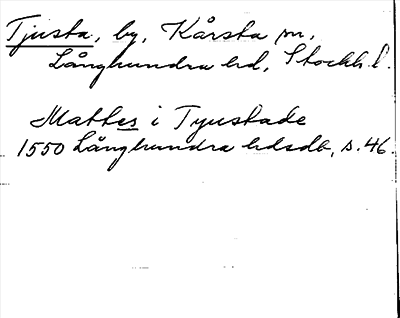 Tjusta, by, Kårsta sn,
Långhundra hd, Stockh. l.
Mattes i Tyustade
1550 Långhundra hdsdb, s. 46.